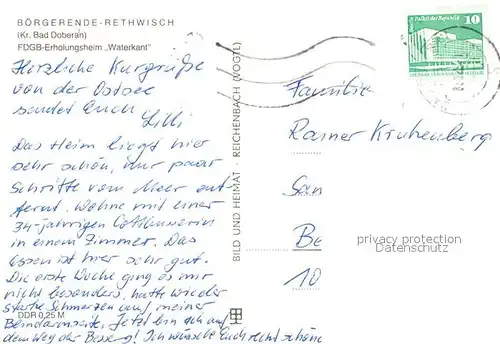 BÖRGERENDE-RETHWISCH
(Kr. Bad Doberan)
FDGB-Erholungsheim „Waterkant“
Herzliche Kurgrüße
von der Ostsee
sendet Euch
Lilli
Das Heim liegt hier
sehr schön, nur paar
Schritte vom Meer ent
fernt. Wohne mit einer
34-jährigen Cottbuserin
in einem Zimmer. Das
Essen ist hier sehr gut.
Die erste Woche ging es mir
nicht besonders, hatte wieder
starke Schmerzen auf meiner
Jetzt bin ich auf
dem Weg der Besserung! Ich wünsche Euch recht schöne
DDR 0,25 M
BILD UND HEIMAT - REICHENBACH (VOGTL)
10
Palast der Republik
Familie
Rainer Kruhenberg
San
Be
10
privacy protection
Datenschutz